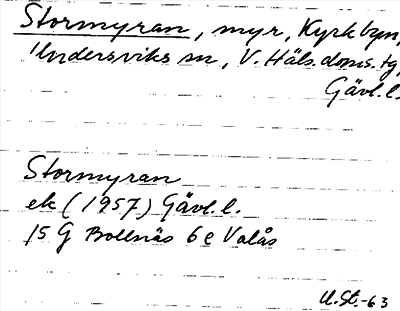 Stormyran, myr, Kyrkbyn,
Undersviks sn, V. Häls. doms. tg,
Gävl. l.
Stormyran
ek (1957) Gävl. l.
15 G Bollnäs 6 e Valås
U. St. -63